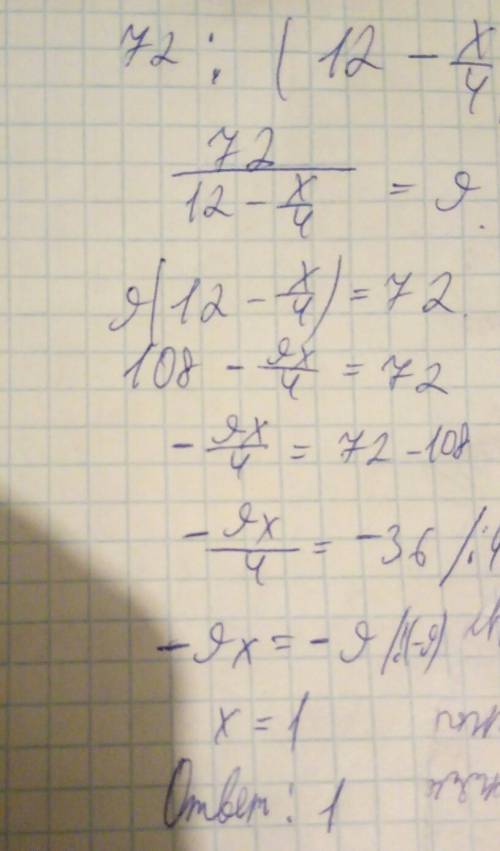 72 : ( 12 - x/4
72/(12 - x/4) = 9
9(12 - x/4) = 72
108 - 9x/4 = 72
- 9x/4 = 72 - 108
- 9x/4 = -36 /:4
- 9x = - 9 /:(-9)
x = 1
Ответ: 1